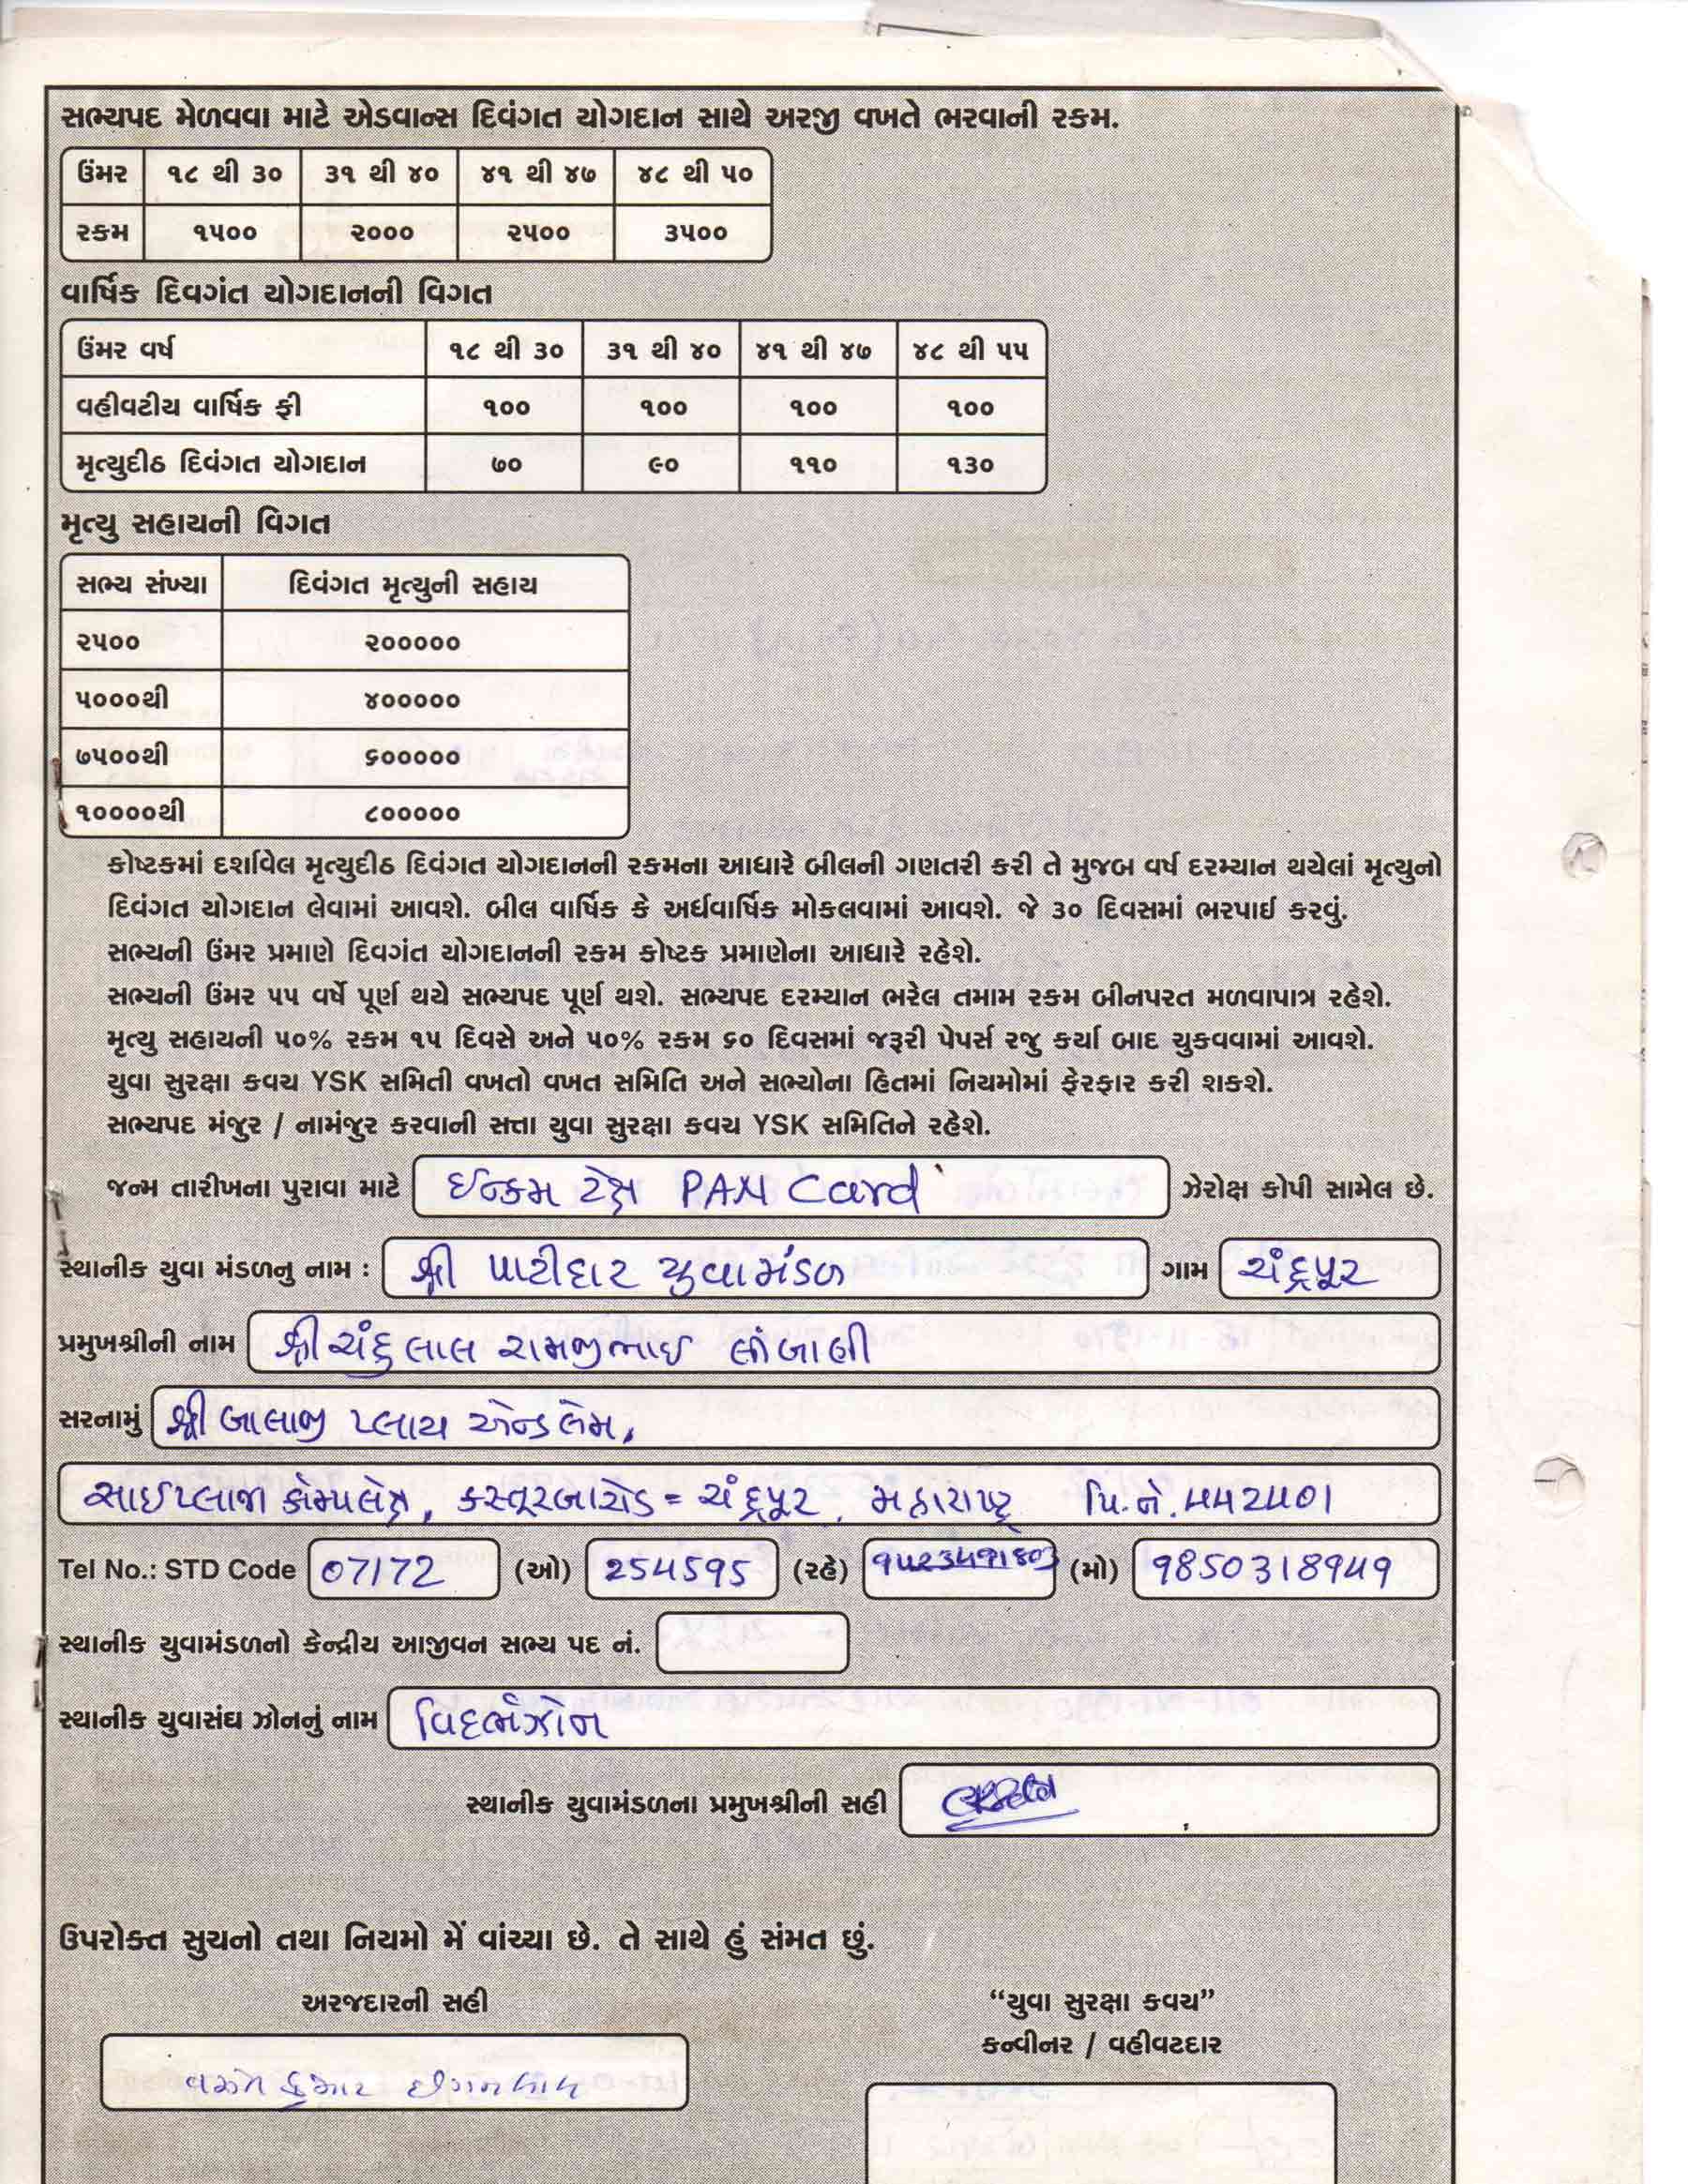 સભ્યપદ મેળવવા માટે એડવાન્સ દિવંગત યોગદાન સાથે અરજી વખતે ભરવાની રકમ.
ઉંમર ૧૮ થી ૩૦ ૩૧ થી ૪૦ ૪૧ થી ૪૭ ૪૮ થી ૫૦
રકમ ૧૫૦૦ ૨૦૦૦ ૨૫૦૦ ૩૫૦૦
વાર્ષિક દિવગંત યોગદાનની વિગત
ઉંમર વર્ષ ૧૮ થી ૩૦ ૩૧ થી ૪૦ ૪૧ થી ૪૭ ૪૮ થી ૫૫
વહીવટીય વાર્ષિક ફી ૧૦૦ ૧૦૦ ૧૦૦ ૧૦૦
મૃત્યુદીઠ દિવંગત યોગદાન ૭૦ ૯૦ ૧૧૦ ૧૩૦
મૃત્યુ સહાયની વિગત
સભ્ય સંખ્યા દિવંગત મૃત્યુની સહાય
૨૫૦૦ ૨૦૦૦૦૦
૫૦૦૦થી ૪૦૦૦૦૦
૭૫૦૦થી ૬૦૦૦૦૦
૧૦૦૦૦થી ૮૦૦૦૦૦
કોષ્ટકમાં દર્શાવેલ મૃત્યુદીઠ દિવંગત યોગદાનની રકમના આધારે બીલની ગણતરી કરી તે મુજબ વર્ષ દરમ્યાન થયેલાં મૃત્યુનો
દિવંગત યોગદાન લેવામાં આવશે. બીલ વાર્ષિક કે અર્ધવાર્ષિક મોકલવામાં આવશે. જે ૩૦ દિવસમાં ભરપાઈ કરવું.
સભ્યની ઉંમર પ્રમાણે દિવગંત યોગદાનની રકમ કોષ્ટક પ્રમાણેના આધારે રહેશે.
સભ્યની ઉંમર ૫૫ વર્ષે પૂર્ણ થયે સભ્યપદ પૂર્ણ થશે. સભ્યપદ દરમ્યાન ભરેલ તમામ રકમ બીનપરત મળવાપાત્ર રહેશે.
મૃત્યુ સહાયની ૫૦% રકમ ૧૫ દિવસે અને ૫૦% રકમ ૬૦ દિવસમાં જરૂરી પેપર્સ રજુ કર્યા બાદ ચુકવવામાં આવશે.
યુવા સુરક્ષા કવચ YSK સમિતી વખતો વખત સમિતિ અને સભ્યોના હિતમાં નિયમોમાં ફેરફાર કરી શકશે.
સભ્યપદ મંજુર / નામંજુર કરવાની સત્તા યુવા સુરક્ષા કવચ YSK સમિતિને રહેશે.
જન્મ તારીખના પુરાવા માટે ઈન્કમ ટેક્ષ PAN Card ઝેરોક્ષ કોપી સામેલ છે.
સ્થાનીક યુવા મંડળનુ નામ : શ્રી પાટીદાર યુવામંડળ ગામ ચંદ્રપૂર
પ્રમુખશ્રીની નામ શ્રી ચંદુલાલ રામજીભાઈ લીંબાણી
સરનામું શ્રી બાલાજી પ્લાય એન્ડ લેમ,
સાઈપ્લાજા કોમ્પલેક્ષ, કસ્તૂરબારોડ = ચંદ્રપૂર, મહારાષ્ટ્ર પિ.નં. ૪૪૨૪૦૧
Tel No.: STD Code 07172 (ઓ) 254595 (રહે) (મો) 9850318949
સ્થાનીક યુવામંડળનો કેન્દ્રીય આજીવન સભ્ય પદ નં.
સ્થાનીક યુવાસંઘ ઝોનનું નામ વિદર્ભઝોન
સ્થાનીક યુવામંડળના પ્રમુખશ્રીની સહી
ઉપરોક્ત સુચનો તથા નિયમો મેં વાંચ્યા છે. તે સાથે હું સંમત છું.
અરજદારની સહી “યુવા સુરક્ષા કવચ”
કન્વીનર / વહીવટદાર
કુમાર છગનલાલ